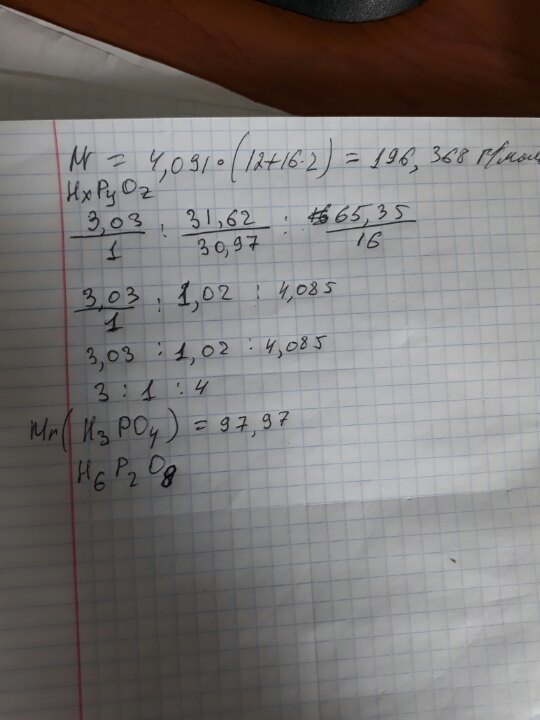 M = 4,091·(12+16·2) = 196,368 г/моль
HxPyOz
3,03/1 : 31,62/30,97 : 65,35/16
3,03/1 : 1,02 : 4,085
3,03 : 1,02 : 4,085
3 : 1 : 4
Mr(H3PO4) = 97,97
H6P2O8